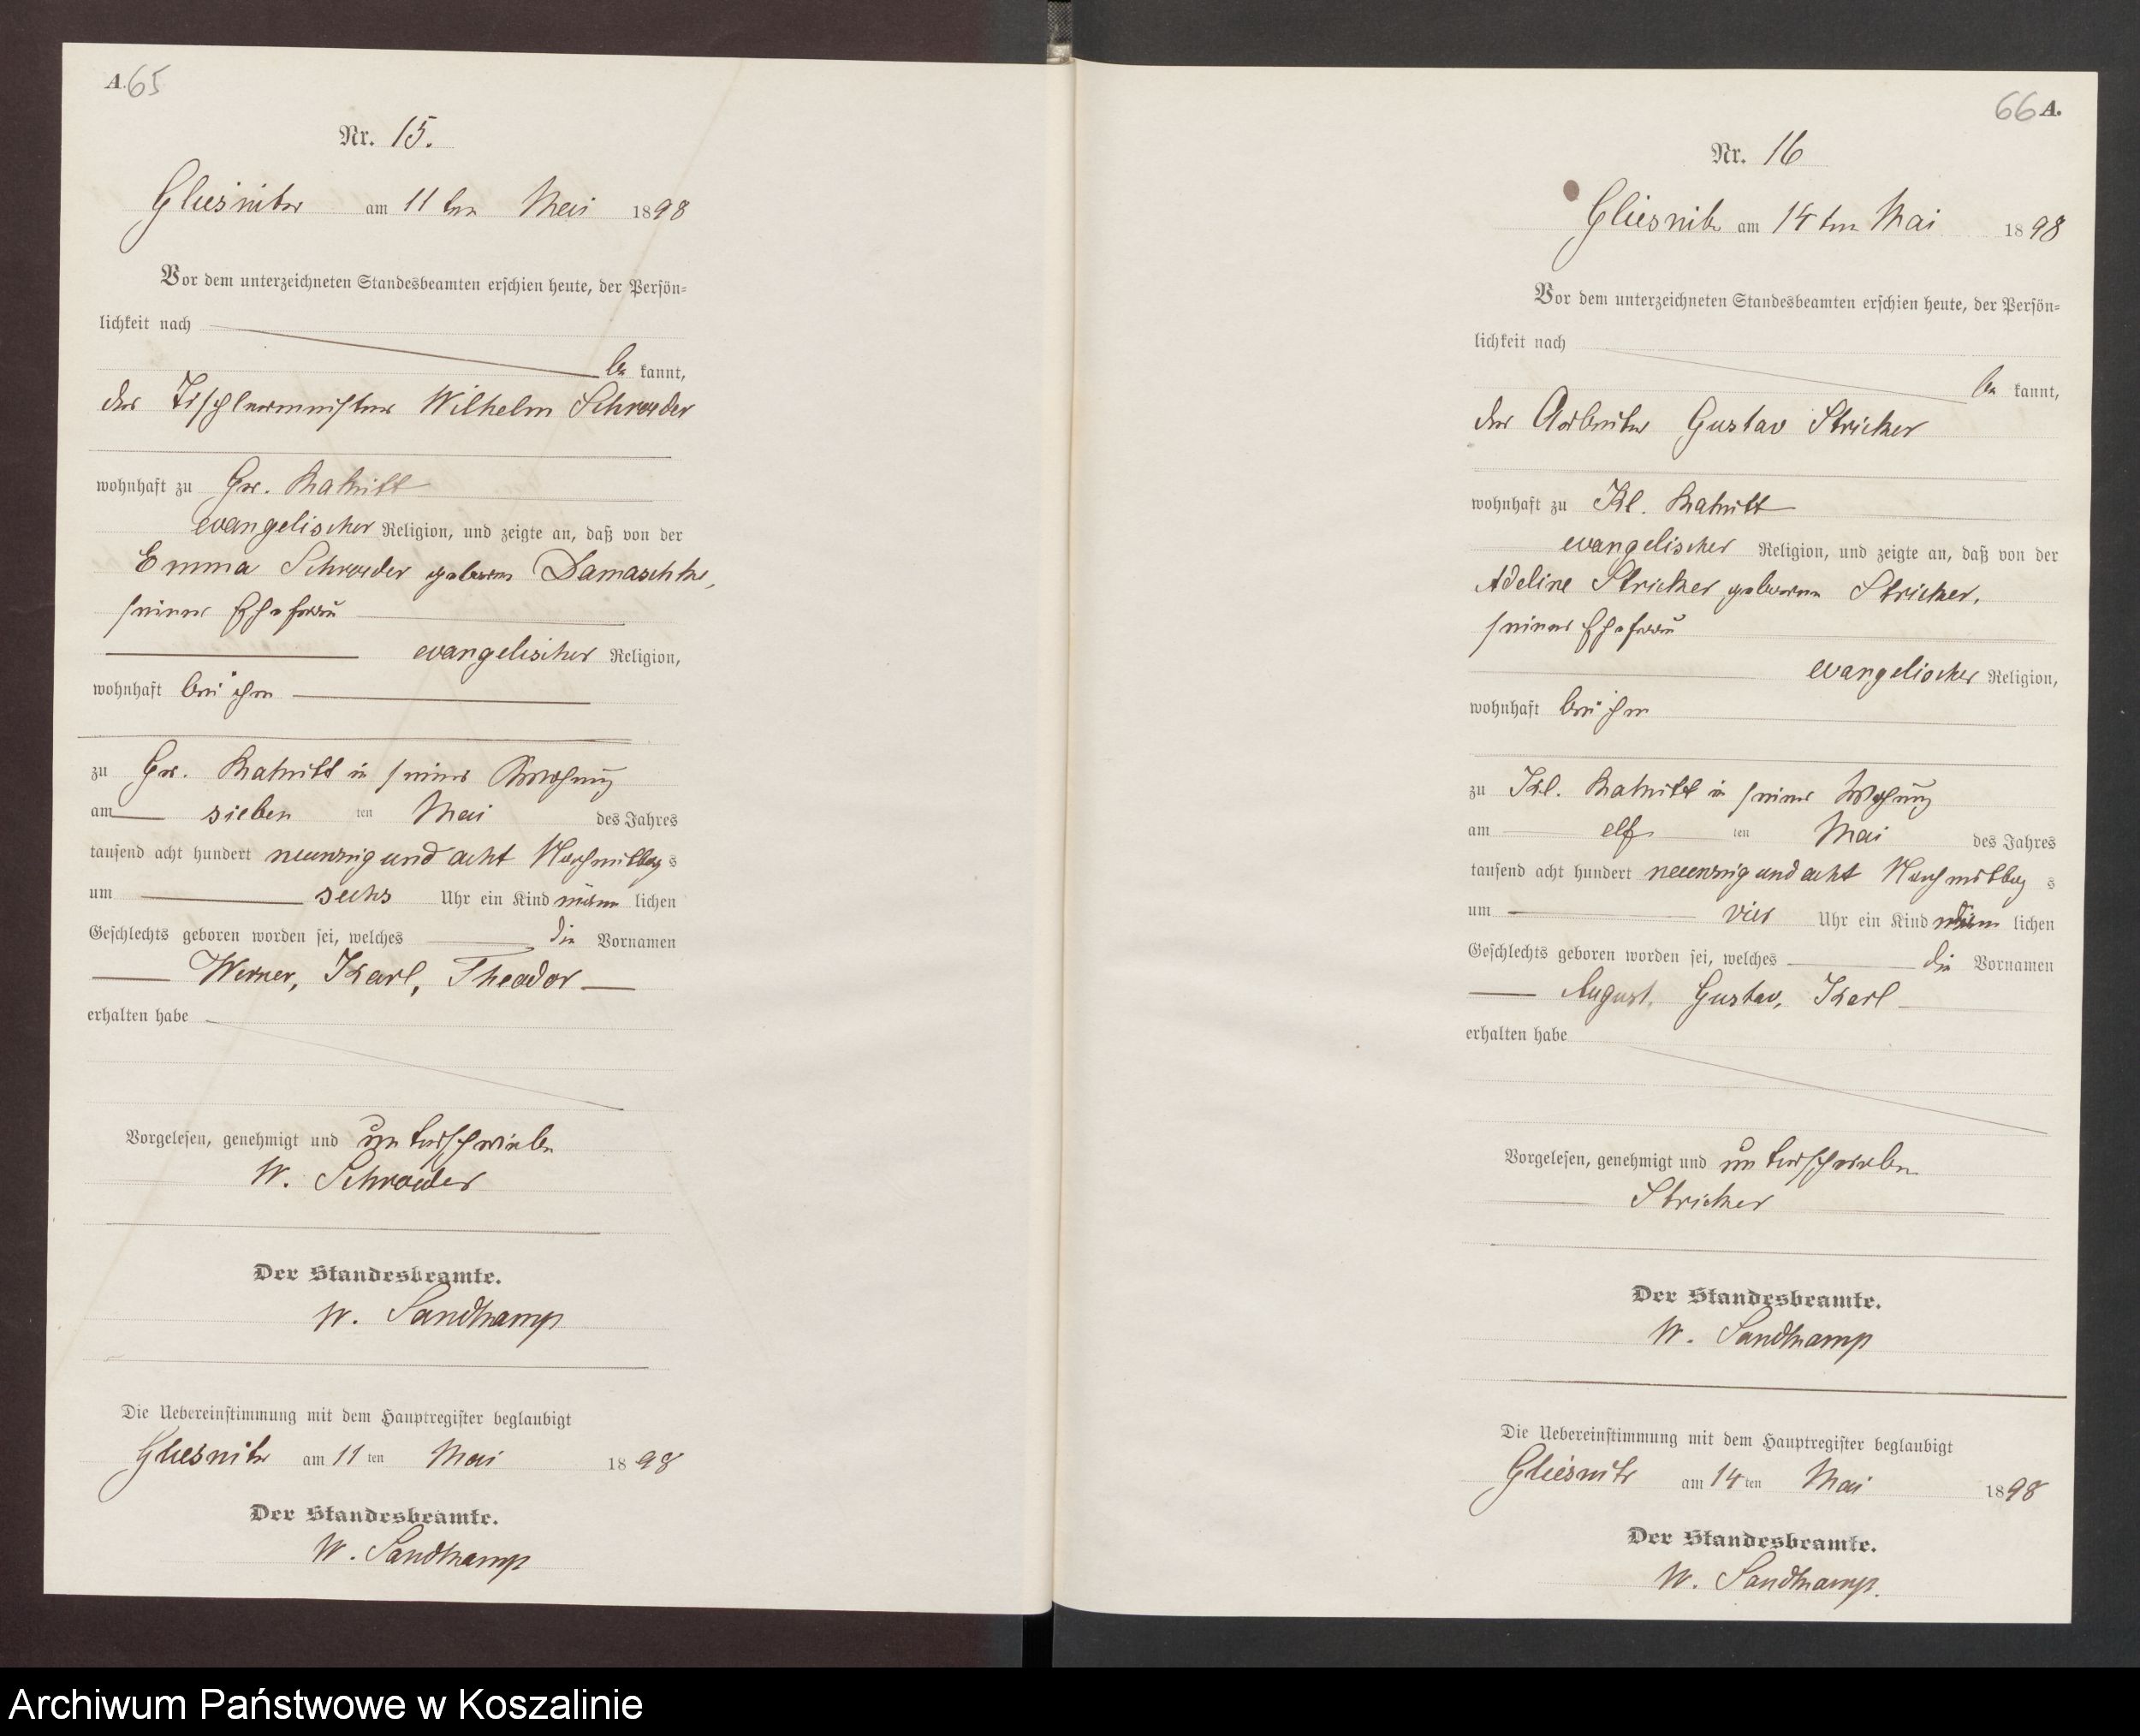 A. 65
Nr. 15.
Gliesnitz am 11ten Mai 1898
Vor dem unterzeichneten Standesbeamten erschien heute, der Persön-
lichkeit nach
be kannt,
der Tischlermeister Wilhelm Schroeder
wohnhaft zu Gr.
evangelischer Religion, und zeigte an, daß von der
Emma Schroeder geborene Damaschke,
seiner Ehefrau
evangelischer Religion,
wohnhaft bei ihm
zu Gr. in seiner Wohnung
am sieben ten Mai des Jahres
tausend acht hundert neunzig und acht Nachmittag s
um sechs Uhr ein Kind männ lichen
Geschlechts geboren worden sei, welches die Vornamen
Werner, Karl, Theodor
erhalten habe
Vorgelesen, genehmigt und unterschrieben
W. Schroeder
Der Standesbeamte.
W. Sandkamp
Die Uebereinstimmung mit dem Hauptregister beglaubigt
Gliesnitz am 11 ten Mai 1898
Der Standesbeamte.
W. Sandkamp
66 A.
Nr. 16
Gliesnitz am 14ten Mai 1898
Vor dem unterzeichneten Standesbeamten erschien heute, der Persön-
lichkeit nach
be kannt,
der Arbeiter Gustav Stricker
wohnhaft zu Kl.
evangelischer Religion, und zeigte an, daß von der
Adeline Stricker geborene Stricker,
seiner Ehefrau
evangelischer Religion,
wohnhaft bei ihm
zu Kl. in seiner Wohnung
am elf ten Mai des Jahres
tausend acht hundert neunzig und acht Nachmittag s
um vier Uhr ein Kind männ lichen
Geschlechts geboren worden sei, welches die Vornamen
August, Gustav, Karl
erhalten habe
Vorgelesen, genehmigt und unterschrieben
Stricker
Der Standesbeamte.
W. Sandkamp
Die Uebereinstimmung mit dem Hauptregister beglaubigt
Gliesnitz am 14 ten Mai 1898
Der Standesbeamte.
W. Sandkamp.
Archiwum Państwowe w Koszalinie